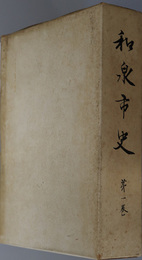 和泉市史 第一巻